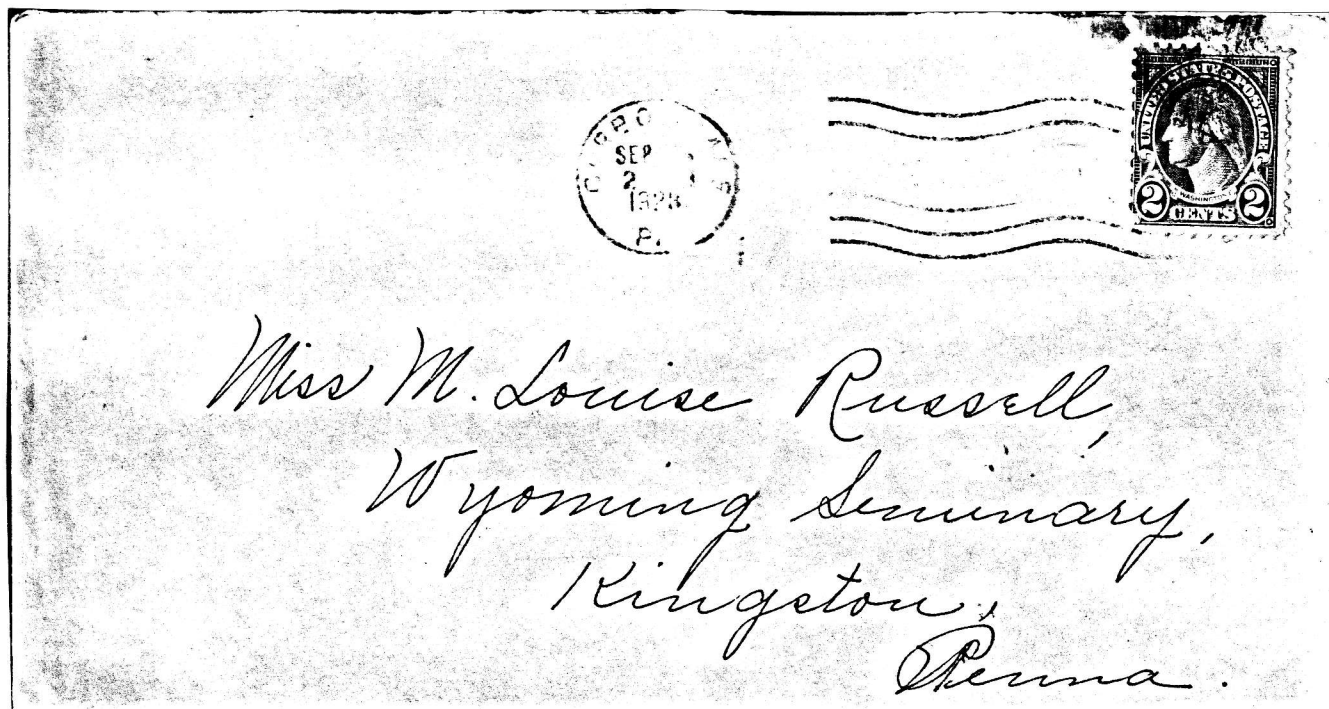 SEP
2
1928
UNITED STATES POSTAGE
WASHINGTON
2 CENTS 2
Miss M. Louise Russell,
Wyoming Seminary,
Kingston,
Penna.